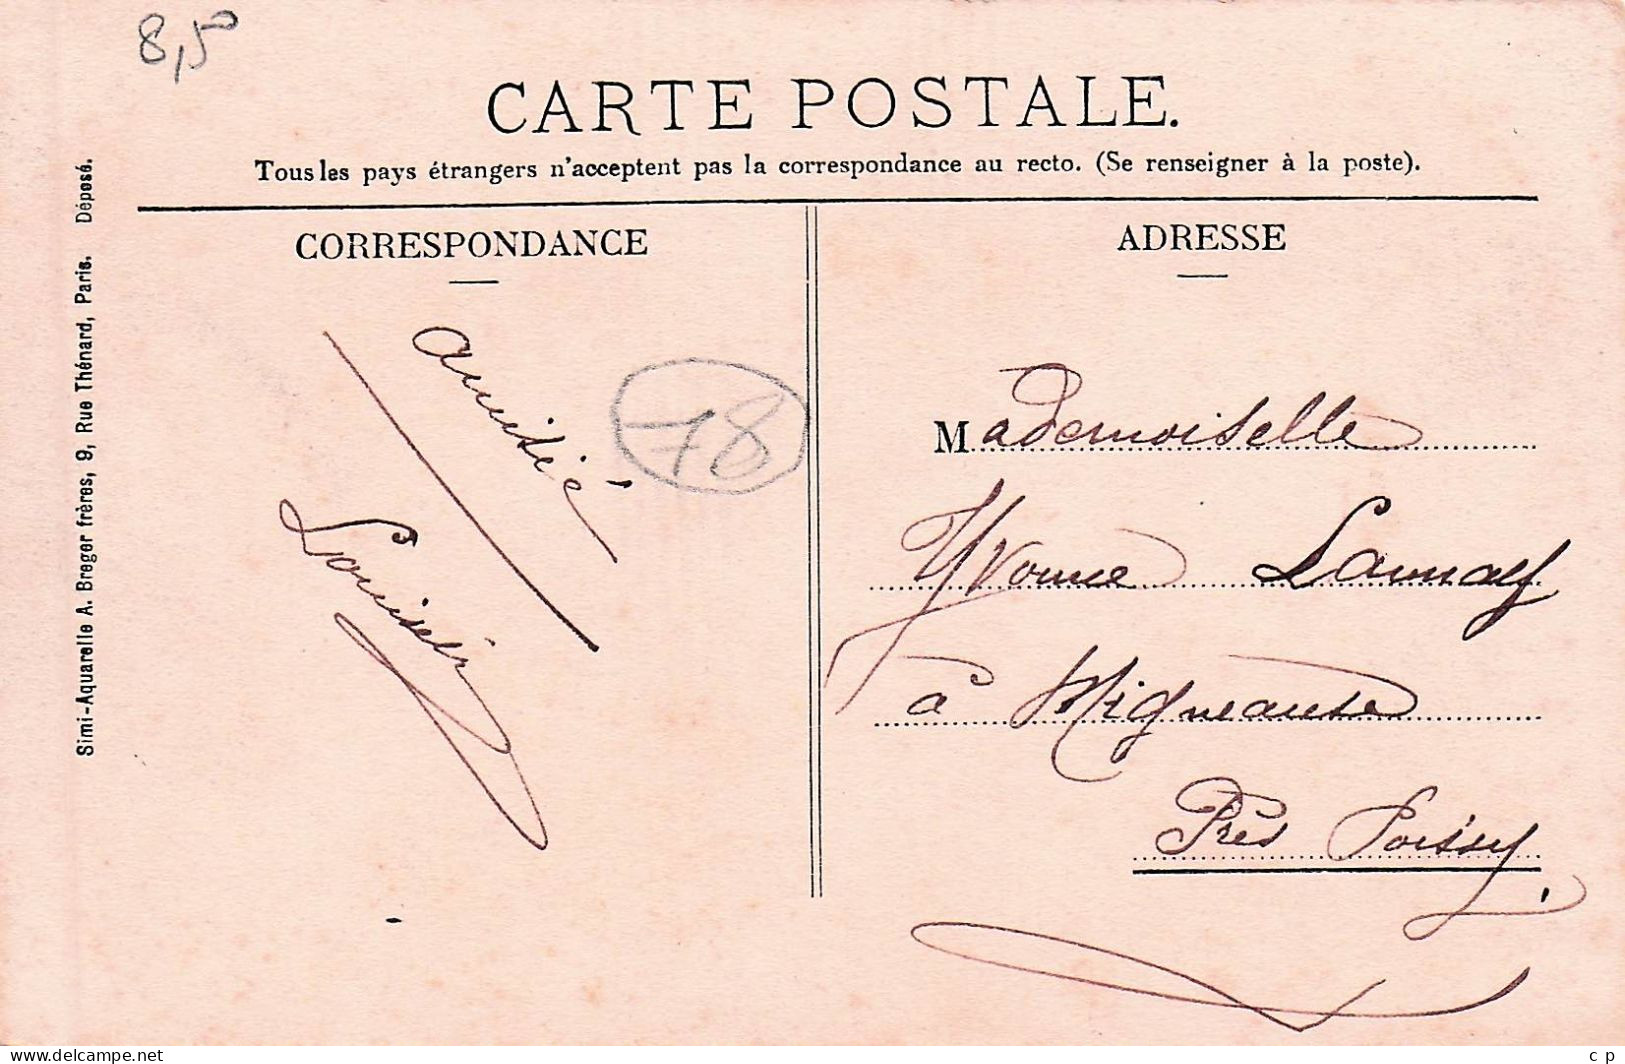 8,50
CARTE POSTALE.
Tous les pays étrangers n'acceptent pas la correspondance au recto. (Se renseigner à la poste).
Simi-Aquarelle A. Breger frères, 9, Rue Thénard, Paris. Déposé.
CORRESPONDANCE
amitié
78
ADRESSE
Mademoiselle
Yvonne Launay
à Migneause
Près Poissy
delcampe.net
c p